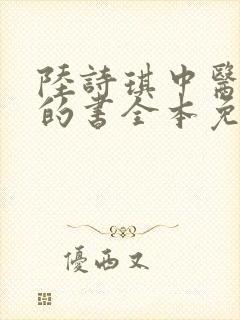 陸詩琪中醫
的書全本免
優西又